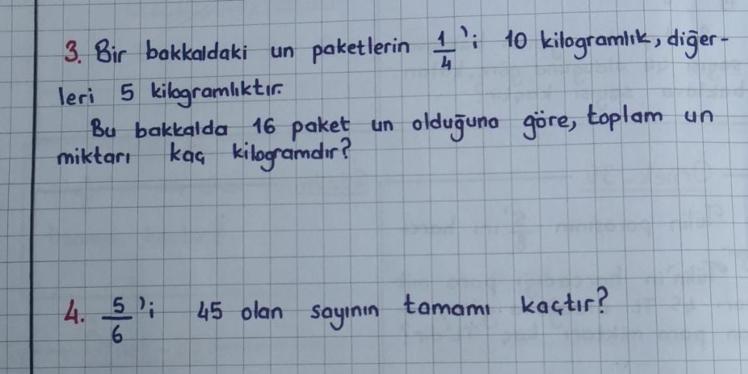 3. Bir bakkaldaki un paketlerin 1/4'i 10 kilogramlık, diğer-
leri 5 kilogramlıktır.
Bu bakkalda 16 paket un olduğuna göre, toplam un
miktarı kaç kilogramdır?
4. 5/6'i 45 olan sayının tamamı kaçtır?